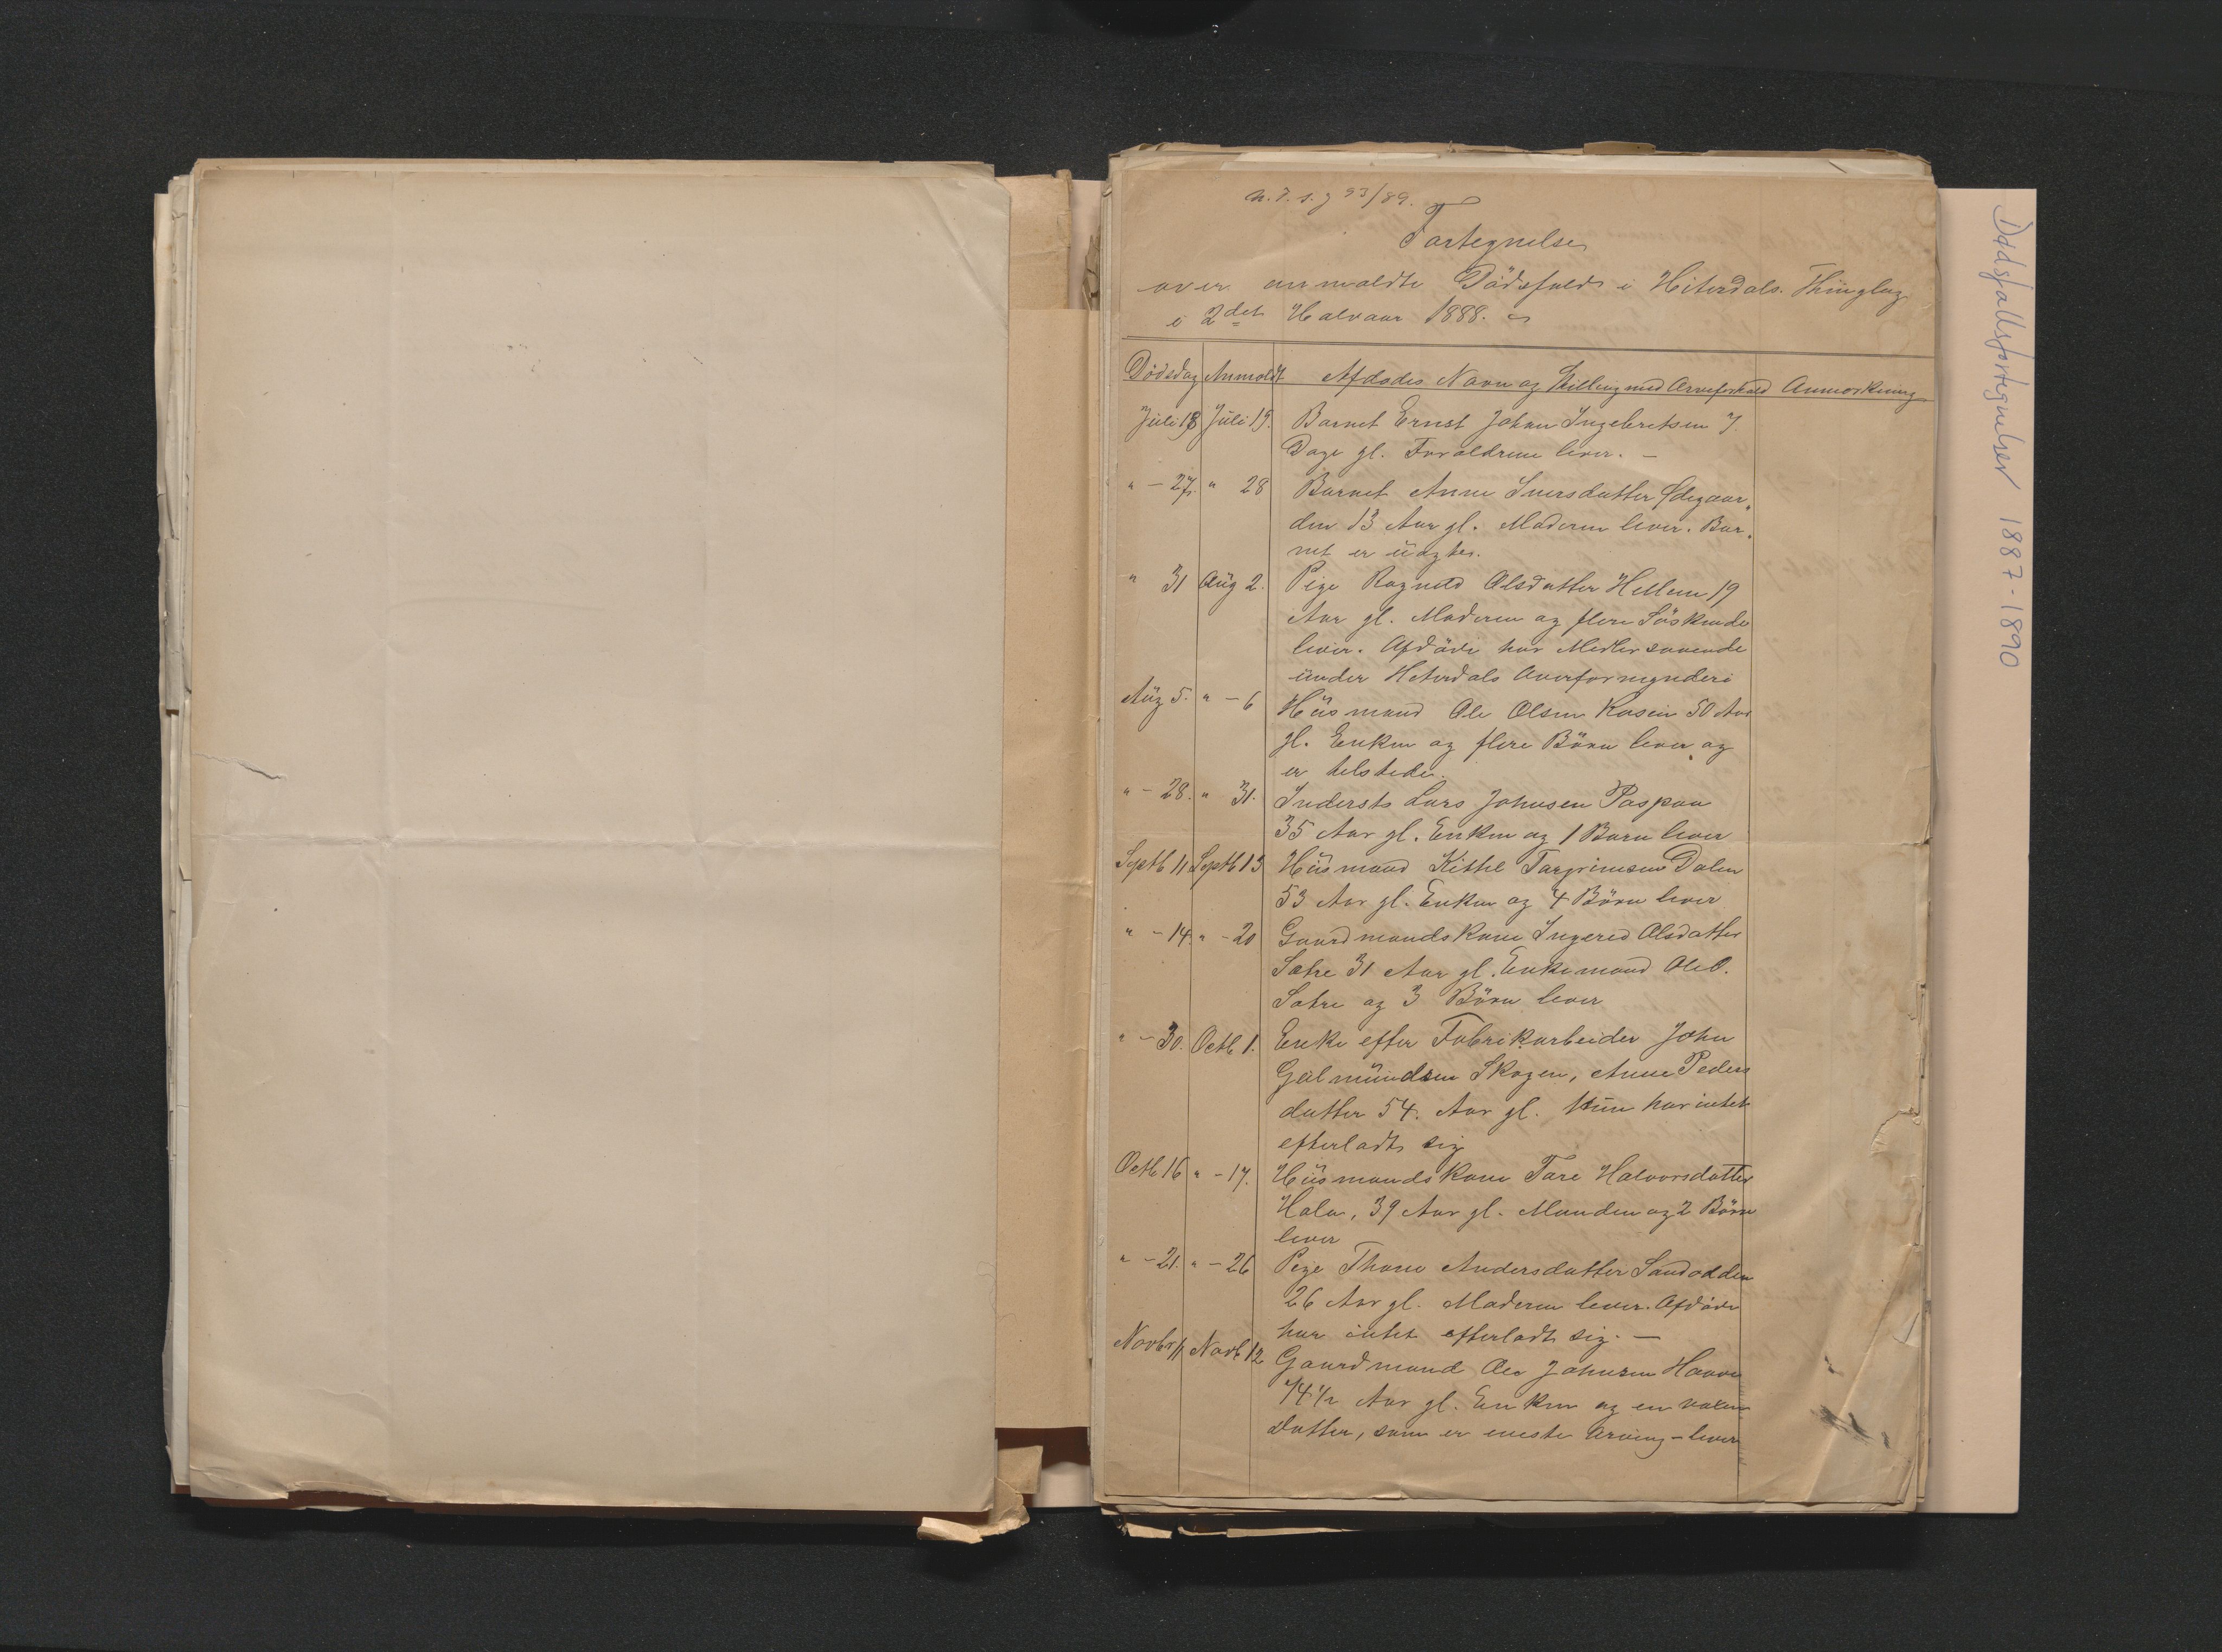 93/89.
Fortegnelse
over anmeldte Dödsfald i Hiterdals Thinglag
i 2det Halvaar 1888.
Dödsdag Anmeldt Afdödes Navn og Stilling med Arveforhold Anmærkning
Juli 18 Juli 19. Barnet Ernst Johan Ingebretsen 7
Dage gl. Forældrene lever. —
" - 27. " 28 Barnet Anne Iversdatter Ødegaar„
den 13 Aar gl. Moderen lever. Bar„
net er uægte.
" 31 Aug 2. Pige Ragnild Olsdatter Hellem 19
Aar gl. Moderen og flere Söskende
lever. Afdöde har Midler
under Hiterdals Overformynderi
Aug 5. " - 6 Husmand Ole Olsen Kasin 50 Aar
gl. Enken og flere Börn lever og
er tilstede.
" - 28. " 31. Inderst Lars Johnsen
35 Aar gl. Enken og 1 Barn lever
Septb 11 Septb 13 Husmand Kittil Torgrimsen Dalen
53 Aar gl. Enken og 4 Börn lever
" - 14. " - 20 Gaardmandskone Ingered Olsdatter
Sætre 31 Aar gl. Enkemand Ole O.
Sætre og 3 Börn lever
" - 30. Octb 1. Enke efter Fabrikarbeider John
Skogen, Anne Peders
datter 54. Aar gl. Hun har intet
efterladt sig
Octb 16 " - 17. Husmandskone Tore Halvorsdatter
39 Aar gl. Manden og 2 Börn
lever
" - 21. " - 26 Pige Thone Andersdatter Sandodden
26 Aar gl. Moderen lever. Afdöde
har intet efterladt sig. —
Novbr 11 Novb 12 Gaardmand Ole Johnsen Haave
74 1/2 Aar gl. Enken og en voxen
Datter, som er eneste Arving - lever
Dødsfallsfortegnelser 1887-1890